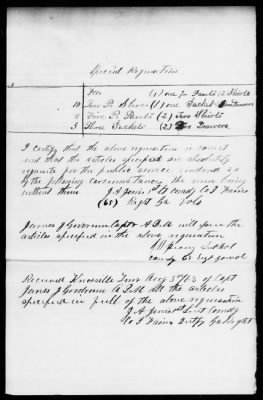 Special Requisition
For (1) one pr Pants (2) Shirts
10 Ten Pr Shoes (1) one Jacket Two Drawers
5 Five Pr Pants (2) Two Shirts
3 Three Jackets (2) Two Drawers
I certify that the above requisition is correct
and that the articles specified are absolutely
requisite for the public service rendered so
by the following circumstances the men being
without them J A Lieut Comdg Co I
(65) Regt Ga Vols
James J Capt & A Q M will issue the
articles specified in the above requisition
comdg 65 Regt
Received Knoxville Tenn Aug 3 /63 of Capt
James J A Q M all the articles
specified in full of the above requisition
J A Lieut Comdg
Co I Ga Regt